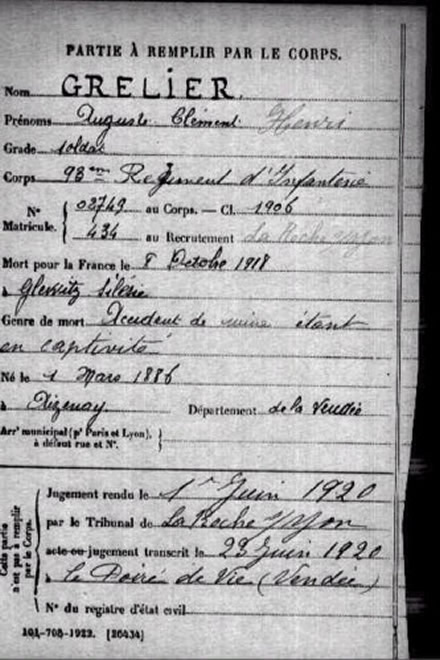 PARTIE À REMPLIR PAR LE CORPS.
Nom GRELIER.
Prénoms Auguste Clément Henri
Grade soldat
Corps 93ème Régiment d'Infanterie
N° Matricule. 02749 au Corps. — Cl. 1906
434 au Recrutement La Roche s/Yon
Mort pour la France le 8 Octobre 1918
à Silésie
Genre de mort Accident de mine étant
en captivité
Né le 1 Mars 1886
à Aizenay Département de la Vendée
Arrt municipal (pr Paris et Lyon),
à défaut rue et N°.
Cette partie n'est pas à remplir par le Corps.
Jugement rendu le 1er Juin 1920
par le Tribunal de La Roche s/Yon
acte ou jugement transcrit le 23 Juin 1920
à le Poiré de Vie (Vendée)
N° du registre d'état civil
101-708-1922. [26434]